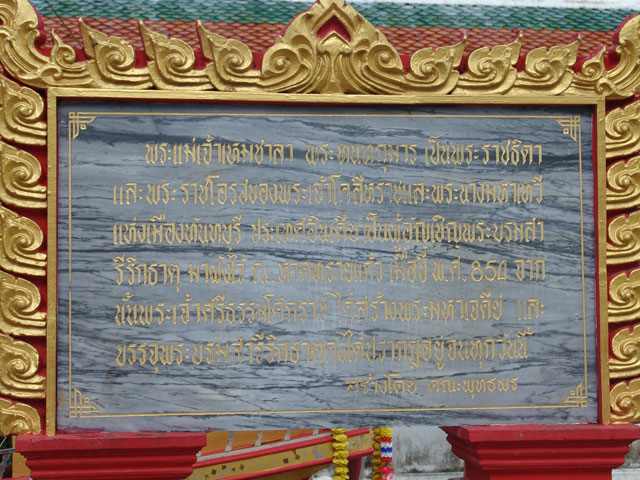 พระแม่เจ้าเหมชาลา พระทนทกุมาร เป็นพระราชธิดา
และพระราชโอรสของพระเจ้าโคสีหราชและพระนางมหาเทวี
แห่งเมืองทันทบุรี ประเทศอินเดีย เป็นผู้อัญเชิญพระบรมสา
รีริกธาตุ มาฝังไว้ ณ. หาดทรายแก้ว เมื่อปี พ.ศ. 854 จาก
นั้นพระเจ้าศรีธรรมโศกราช ได้สร้างพระมหาเจดีย์ และ
บรรจุพระบรมสารีริกธาตุ ได้ปรากฏอยู่จนทุกวันนี้
สร้างโดย คณะพุทธพร